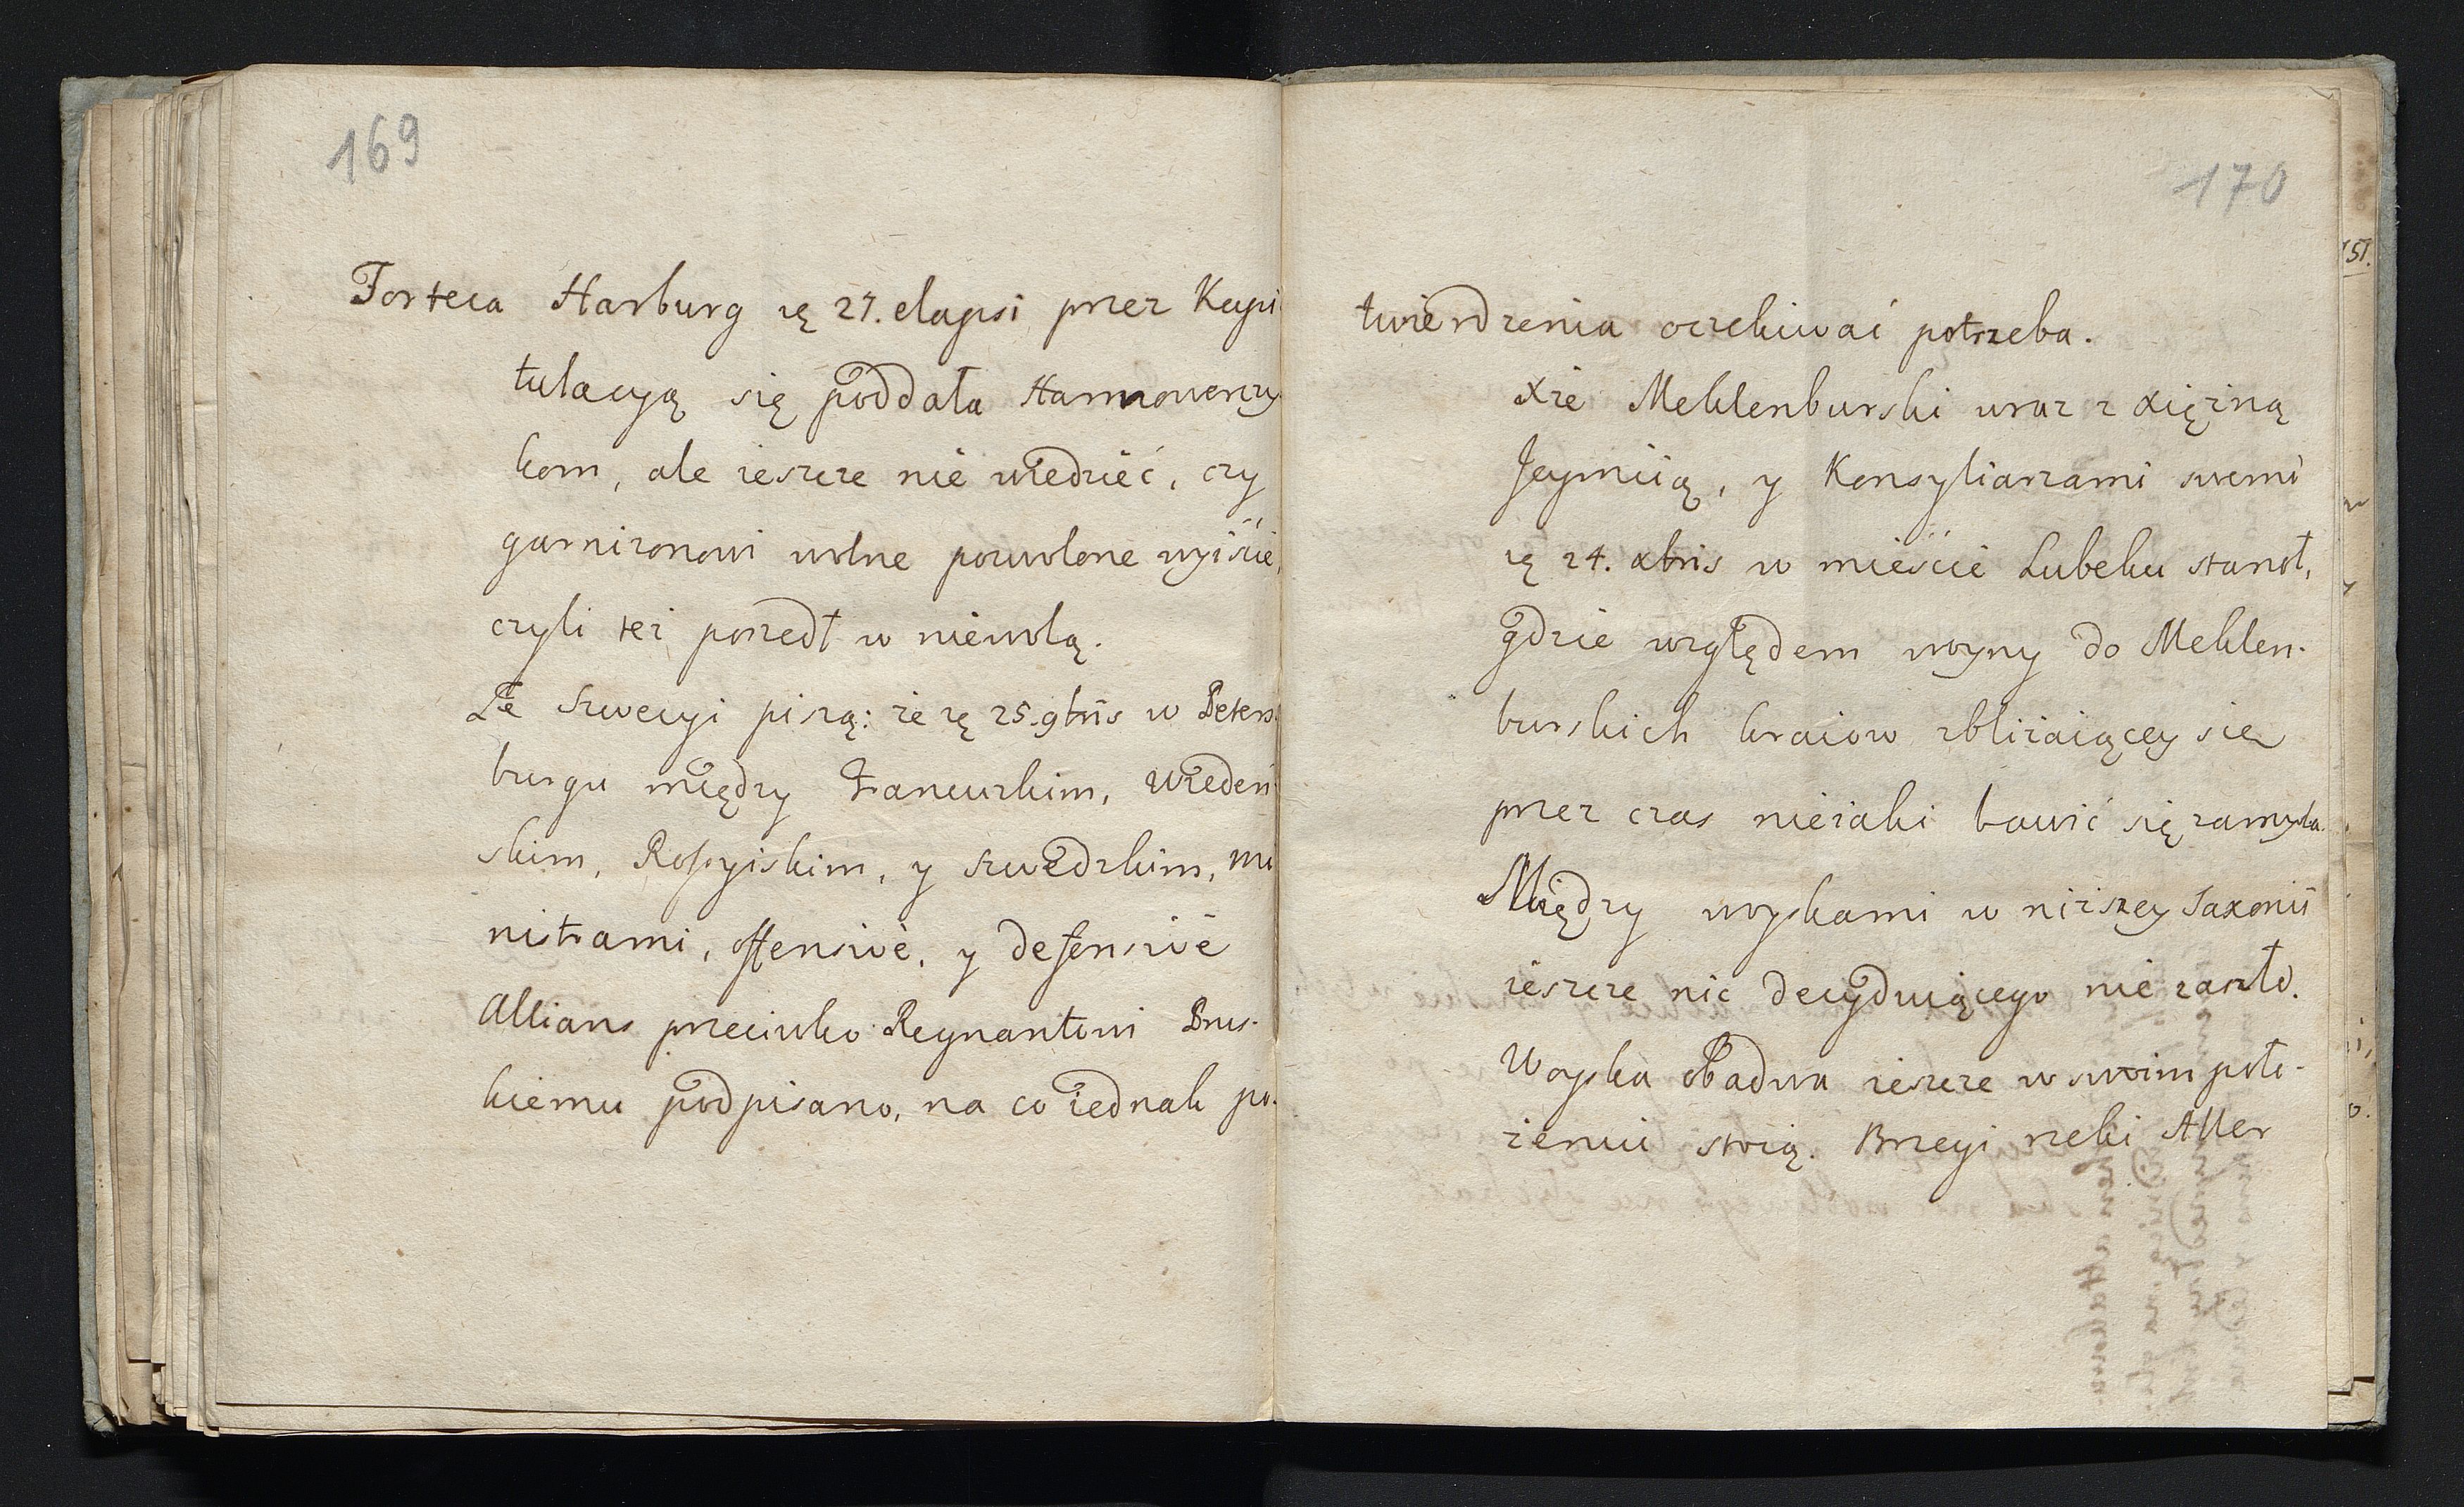 169
Forteca Harburg zę 27. elapsi przez Kapi
tulacyą się poddała Hannowerczy
kom, ale ieszcze nie wiedzieć, czy
garnizonowi wolne powolone wyiście,
czyli też poszedł w niewolą.
Ze Szwecyi piszą: że zę 25. 9bris w Peters
burgu między Francuzkim, Wiedeń
skim, Rossyiskim, y szwedzkim, mi
nistrami, offensivè, y defensivè
Allians przeciwko Regnantowi Prus-
kiemu podpisano, na co iednak po-
170
twierdzenia oczekiwać potrzeba.
Xże Meklenburski wraz z xiężną
Jeymcią, y Konsyliarzami swemi
zę 24. xbris w mieście Lubeku stanoł,
gdzie względem woyny do Meklen-
burskich kraiow zbliżaiącey się
przez czas nieiaki bawić się zamysla.
Między woyskami w niższey Saxonii
ieszcze nic decyduiącego nie zaszło.
Woyska obadwa ieszcze w swoim poło-
żeniu stoią. Brzegi rzeki Aller
151.